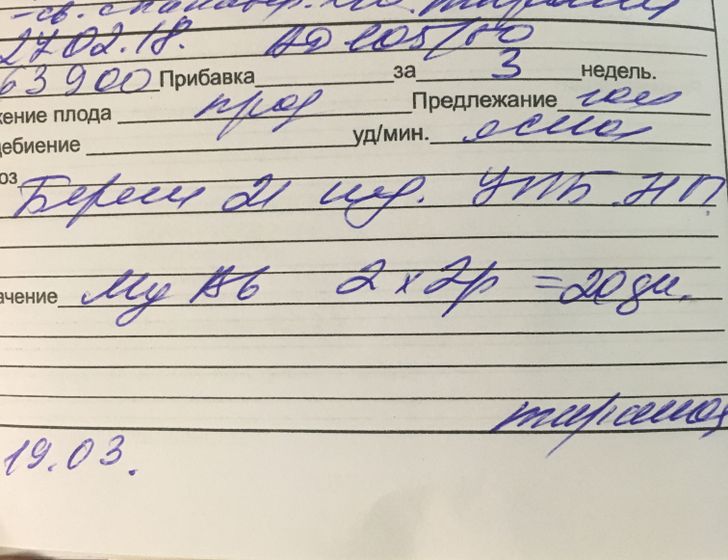 27.02.18. АД 105/60
63900 Прибавка за 3 недель.
жение плода прод Предлежание гол
цебиение уд/мин. ясно
оз Берем 21 нед. УПБ. НП.
ачение Mg B6 2 х 2р = 20 дн.
19.03.